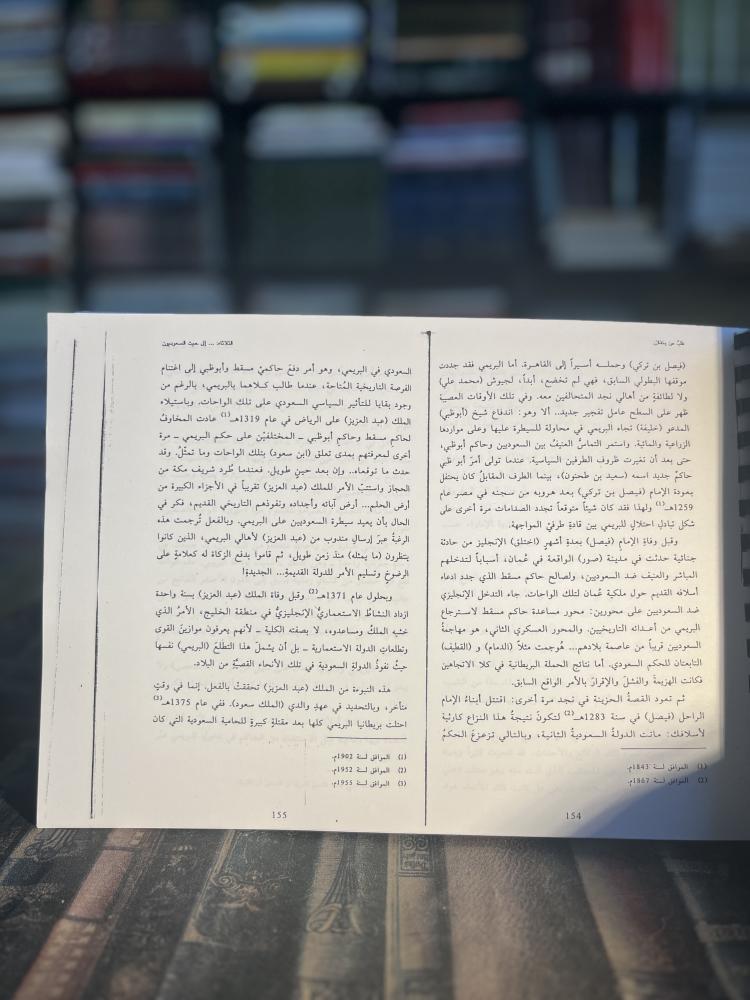 (فيصل بن تركي) وحملـه أسيراً إلى القاهرة. أما البريمي فقد جددت
موقفها البطولي السابق، فهي لم تخضع، أبداً، لجيوش (محمد علي)
ولا لطائفةٍ من أهالي نجد المتحالفين معه. وفي تلك الأوقات العصيبة
ظهر على السطح عامل تفجير جديد.. ألا وهو: اندفاع شيخ (أبوظبي)
المدعو (خليفة) تجاه البريمي في محاولة للسيطرة عليها وعلى مواردها
الزراعية والمائية. واستمر التماسُّ العنيفُ بين السعوديين وحاكم أبوظبي،
حتى بعد أن تغيرت ظروف الطرفين السياسية. عندما تولى أمرَ أبو ظبي
حاكمٌ جديد اسمه (سعيد بن طحنون)، بينما الطرف المقابلُ كان يحتفل
بعودة الإمام (فيصل بن تركي) بعد هروبه من سجنه في مصر عام
1259هـ(1) ولهذا فقد كان شيئاً متوقعاً تجدد الصدامات مرة أخرى على
شكل تبادلِ احتلالٍ للبريمي بين قادةِ طرفَي المواجهة.
وقبل وفاةِ الإمامِ (فيصل) بعدةِ أشهرٍ (اختلق) الإنجليز من حادثة
جنائية حدثت في مدينة (صور) الواقعة في عُمان، أسباباً لتدخلهم
المباشر والعنيف ضد السعوديين، ولصالح حاكم مسقط الذي جدد ادعاء
أسلافه القديم حول ملكية عُمان لتلك الواحات. جاء التدخل الإنجليزي
ضد السعوديين على محورين: محور مساعدة حاكم مسقط لاسترجاع
البريمي من أعدائه التاريخيين. والمحور العسكري الثاني، هو مهاجمةُ
السعوديين قريباً من عاصمة بلادهم... هُوجمت مثلاً (الدمام) و (القطيف)
التابعتان للحكم السعودي. أما نتائج الحملة البريطانية في كلا الاتجاهين
فكانت الهزيمةَ والفشلَ والإقرارَ بالأمر الواقع السابق.
ثم تعود القصةُ الحزينة في نجد مرة أخرى: اقتتل أبناءُ الإمام
الراحل (فيصل) في سنة 1283هـ(2) لتكونَ نتيجةُ هذا النزاع كارثية
لأسلافك: ماتت الدولةُ السعوديةُ الثانية، وبالتالي تزعزعَ الحكمُ
(1) الموافق لسنة 1843م.
(2) الموافق لسنة 1867م.
154
الثلاثاء: ... إلى حيث السعوديون
السعودي في البريمي، وهو أمر دفعَ حاكميْ مسقط وأبوظبي إلى اغتنام
الفرصة التاريخية المُتاحة، عندما طالب كلاهما بالبريمي، بالرغم من
وجود بقايا للتأثير السياسي السعودي على تلك الواحات. وباستيلاء
الملك (عبد العزيز) على الرياض في عام 1319هـ(1) عادت المخاوفُ
لحاكم مسقط وحاكم أبوظبي ـ المختلفَيْن على حكم البريمي ـ مرة
أخرى لمعرفتهم بمدى تعلق (ابن سعود) بتلك الواحات وما تمثّل. وقد
حدث ما توقعاه.. وإن بعد حينٍ طويل. فعندما طُرد شريف مكة من
الحجاز واستتبّ الأمر للملك (عبد العزيز) تقريباً في الأجزاء الكبيرة من
أرض الحلم... أرض آبائه وأجداده ونفوذهم التاريخي القديم، فكر في
الحال بأن يعيد سيطرة السعوديين على البريمي. وبالفعل تُرجمت هذه
الرغبةُ عبرَ إرسالِ مندوب من (عبد العزيز) لأهالي البريمي، الذين كانوا
ينتظرون (ما يمثله) منذ زمن طويل، ثم قاموا بدفع الزكاة له كعلامةٍ على
الرضوخِ وتسليم الأمر للدولة القديمةِ... الجديدة!
وبحلول عام 1371هـ(2) وقبل وفاة الملك (عبد العزيز) بسنة واحدة
ازداد النشاطُ الاستعماريُّ الإنجليزيُّ في منطقة الخليج، الأمرُ الذي
خشيه الملكُ ومساعدوه، لا بصفته الكلية ـ لأنهم يعرفون موازينَ القوى
وتطلعاتِ الدولة الاستعمارية ـ بل أن يشملَ هذا التطلعُ (البريمي) نفسها
حيثُ نفوذُ الدولةِ السعودية في تلك الأنحاء القصيَّةِ من البلاد.
هذه النبوءة من الملك (عبد العزيز) تحققتْ بالفعل، إنما في وقتٍ
متأخر، وبالتحديد في عهدِ والدي (الملك سعود). ففي عام 1375هـ(3)
احتلت بريطانيا البريمي كلها بعد مقتلةٍ كبيرةٍ للحامية السعودية التي كان
(1) الموافق لسنة 1902م.
(2) الموافق لسنة 1952م.
(3) الموافق لسنة 1955م.
155